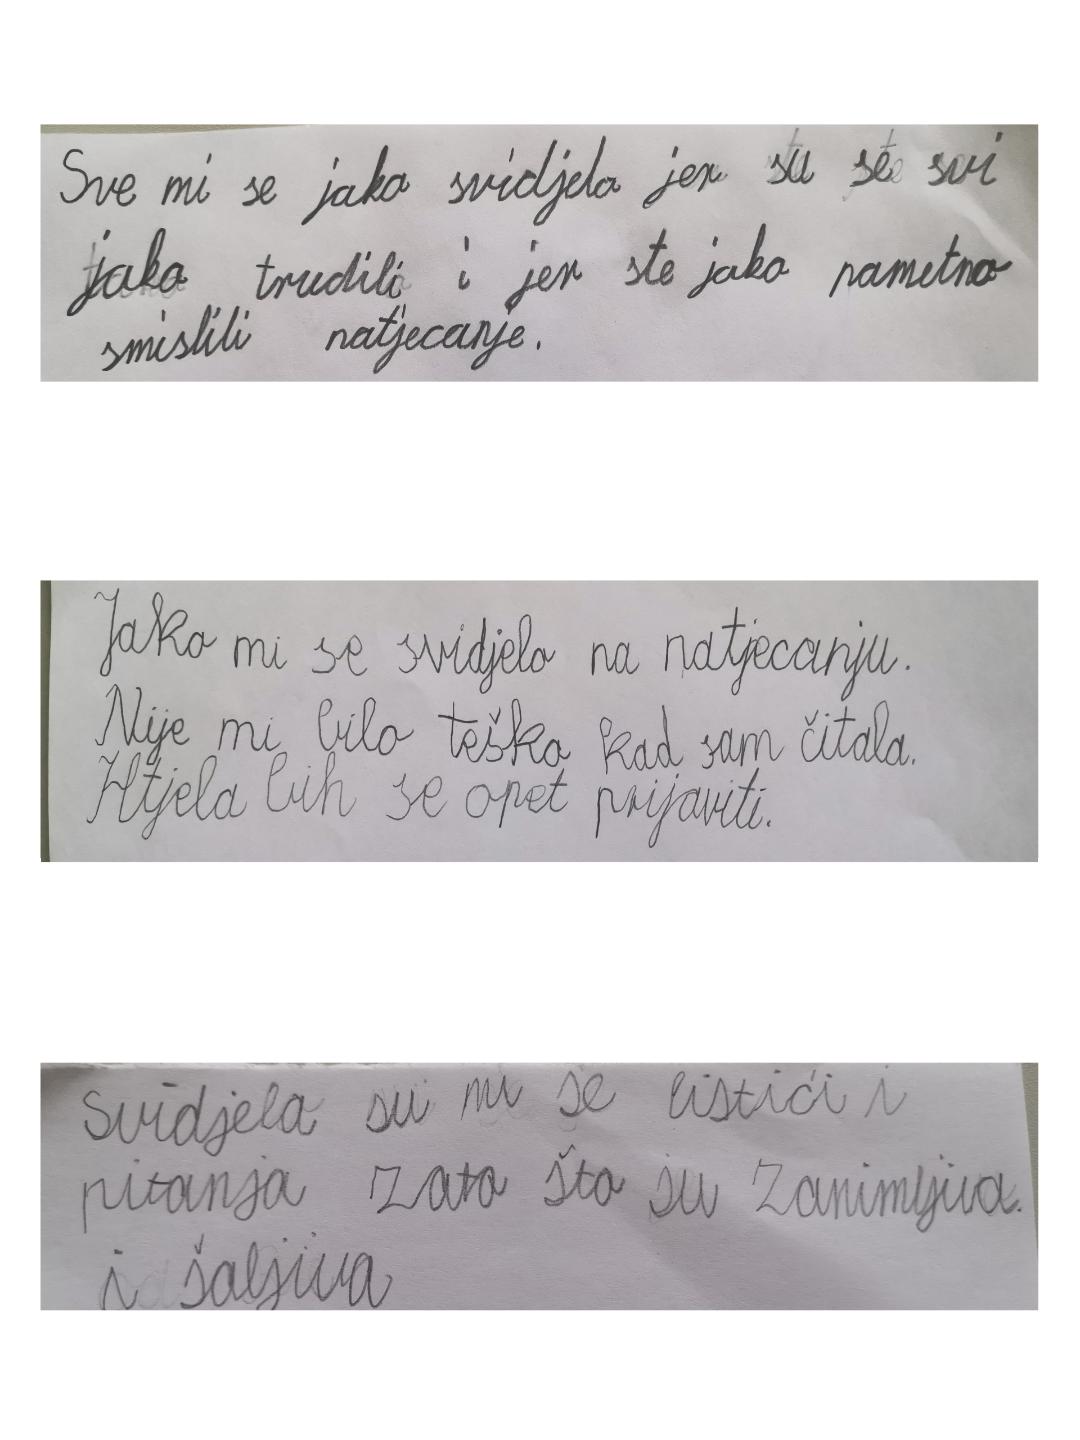 Sve mi se jako svidjelo jer su se svi
jako trudili i jer ste jako pametno
smislili natjecanje.
Jako mi se svidjelo na natjecanju.
Nije mi bilo teško kad sam čitala.
Htjela bih se opet prijaviti.
Svidjela su mi se listići i
pitanja zato što su zanimljiva.
i šaljiva